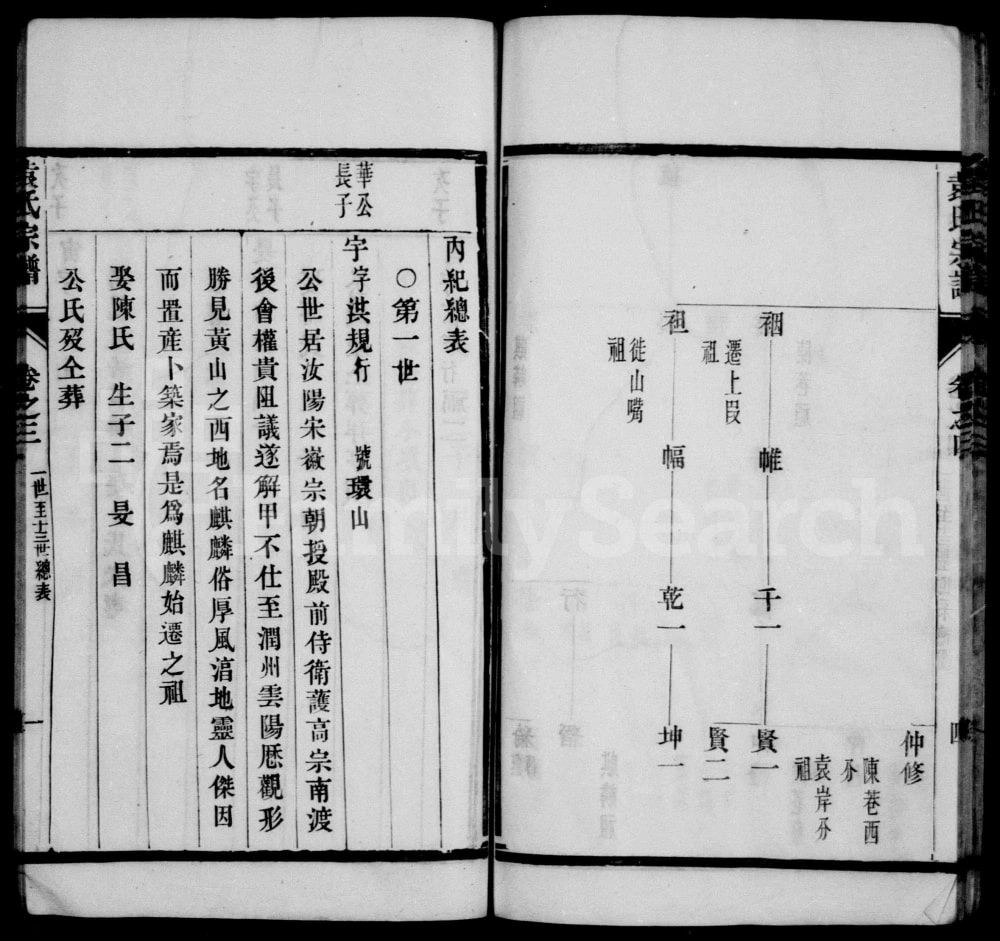 袁氏宗譜
仲修
陳巷西
分
祵 帷 千一 賢一
遷上叚
祖
袁岸分
祖
賢二
袓 幅 乾一 坤一
徙山嘴
祖
內紀總表
○第一世
華公
長子
宇字洪規行 號環山
公世居汝陽宋徽宗朝授殿前侍衛護高宗南渡
後會權貴阻議遂解甲不仕至潤州雲陽厯觀形
勝見黃山之西地名麒麟俗厚風湻地靈人傑因
而置產卜築家焉是爲麒麟始遷之祖
娶陳氏 生子二 旻 昌
公氏歿仝葬
袁氏宗譜 卷之三 一世至十三世總表 一
FamilySearch